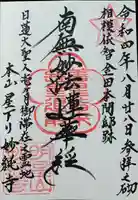 令和四年八月廿八日参拝之砌
相模依智金田本間邸跡
南無妙法蓮華経
日蓮大聖人
霊地
本山星下り妙純寺